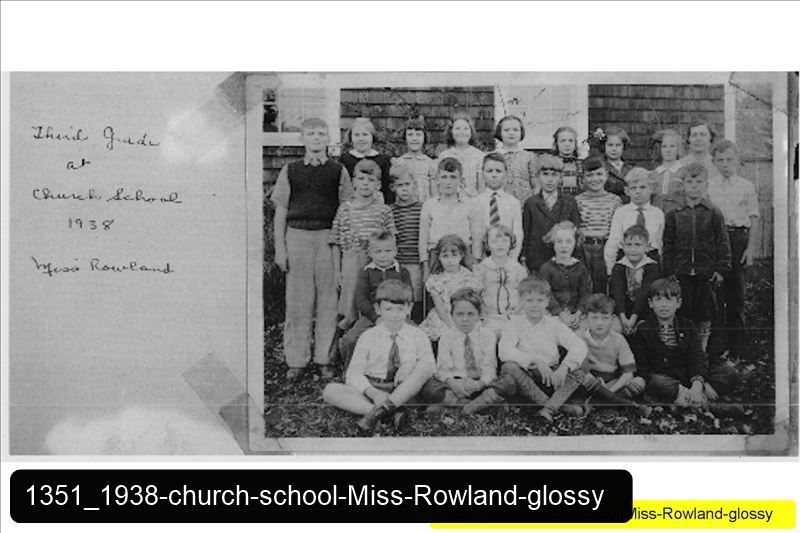 Third Grade
at
Church School
1938
Miss Rowland
1351_1938-church-school-Miss-Rowland-glossy
Miss-Rowland-glossy